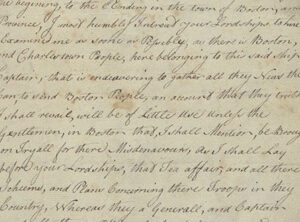 the begining, to the Ending in the town of Boston, and
Province, I most humbly Intreat your Lordships to have
Examined me as soone as Posible, as there is Boston,
and Charlestown People, here belonging to this said Ship
Captain, that is endeavering to gather all they News they
can, to send Boston People, an account that they truth
I shall reveal, will be of Little Use Unless the
Gentlemen, in Boston that, I Shall Mention, be Broug
on Tryall for there Misdemavours, as I shall Lay
before your Lordships, that Tea affair, and all there
Scheems, and Plans Concerning there Troops in they
Country, Whereas they a Generall, and Captain